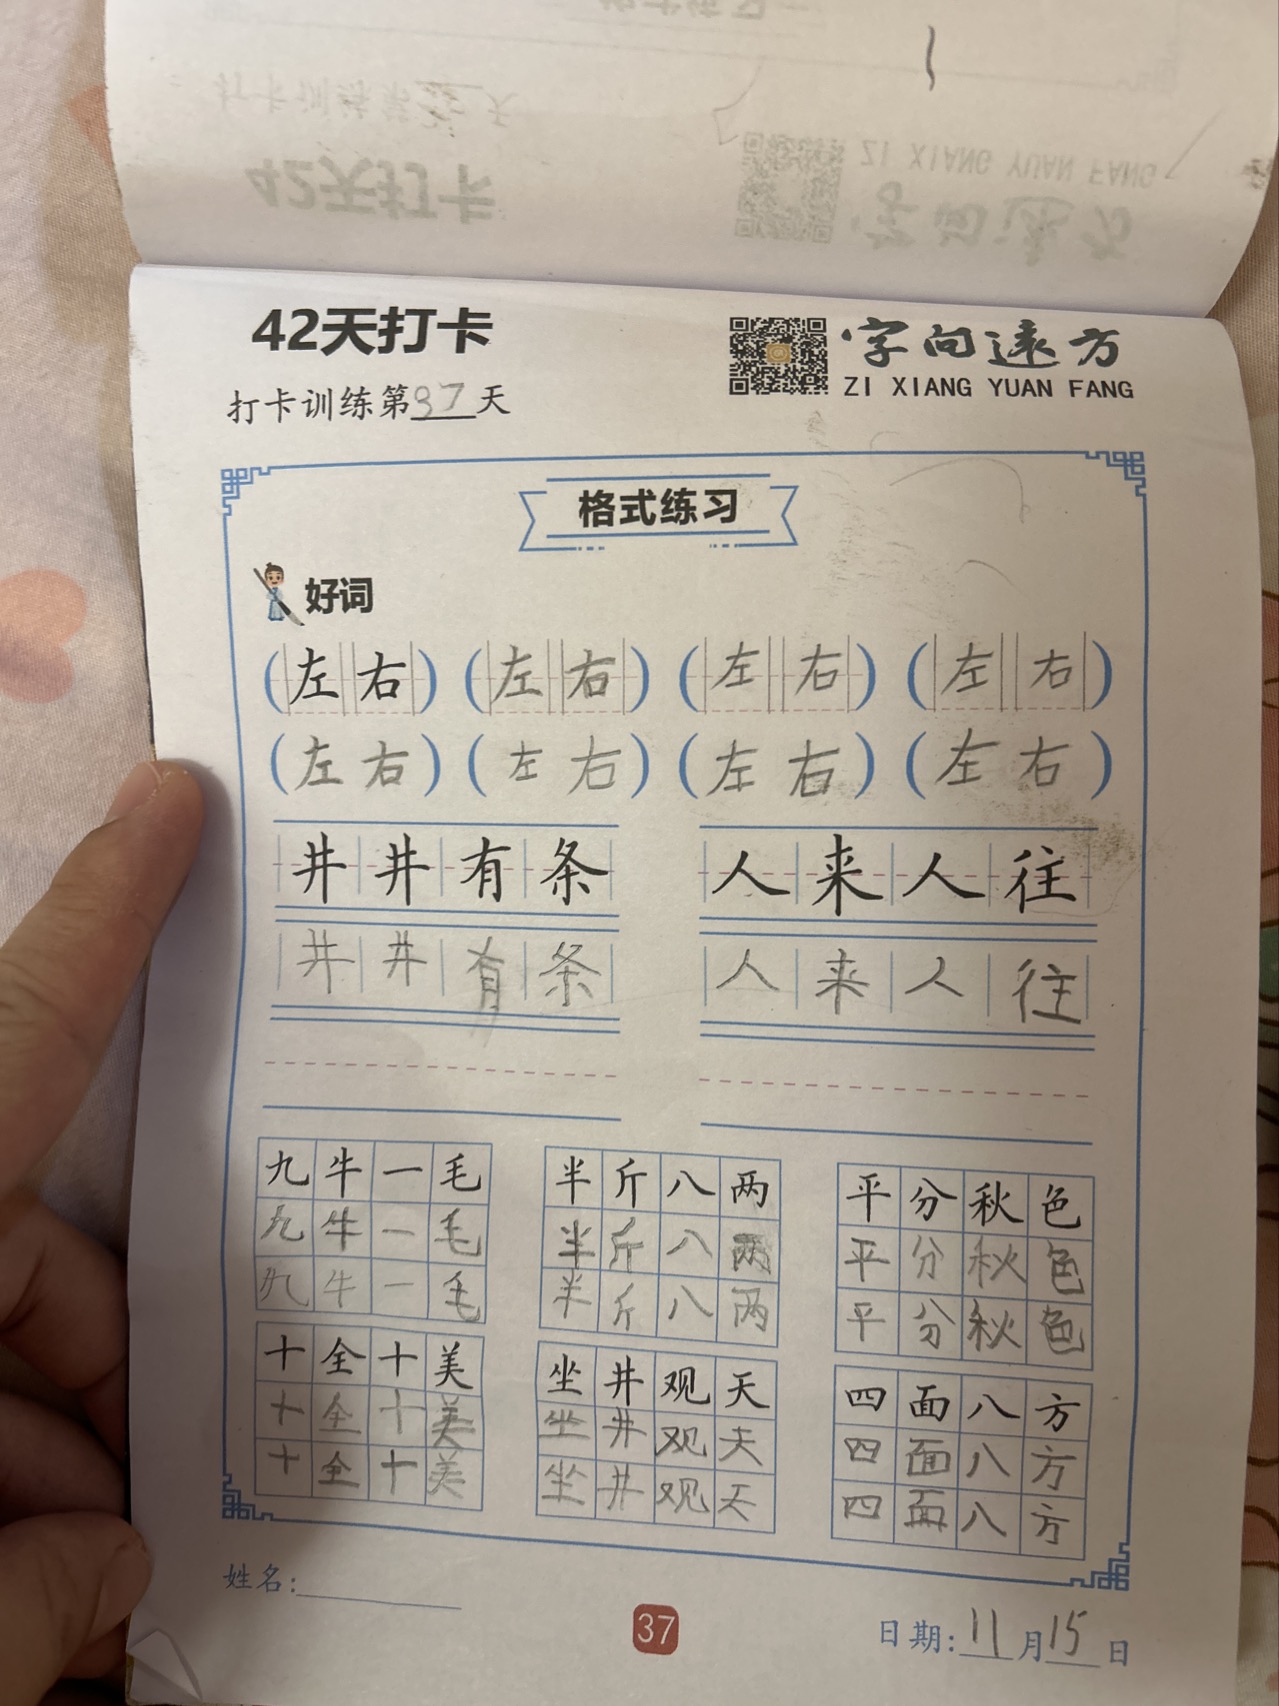 42天打卡
字向远方
ZI XIANG YUAN FANG
打卡训练第37天
格式练习
好词
(左右) (左右) (左右) (左右)
(左右) (左右) (左右) (左右)
井井有条 人来人往
井井有条 人来人往
九牛一毛 半斤八两 平分秋色
九牛一毛 半斤八两 平分秋色
九牛一毛 半斤八两 平分秋色
十全十美 坐井观天 四面八方
十全十美 坐井观天 四面八方
十全十美 坐井观天 四面八方
姓名:
37
日期:11月15日